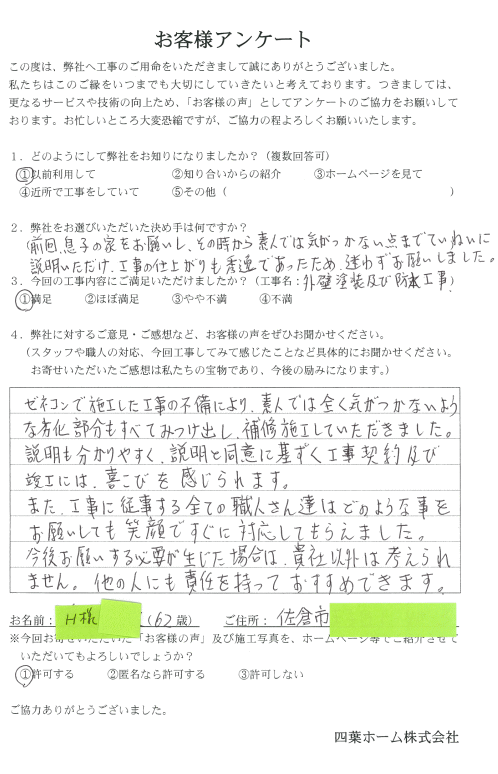 お客様アンケート
この度は、弊社へ工事のご用命をいただきまして誠にありがとうございました。
私たちはこのご縁をいつまでも大切にしていきたいと考えております。つきましては、
更なるサービスや技術の向上ため、「お客様の声」としてアンケートのご協力をお願いして
おります。お忙しいところ大変恐縮ですが、ご協力の程よろしくお願いいたします。
1．どのようにして弊社をお知りになりましたか？（複数回答可）
①以前利用して ②知り合いからの紹介 ③ホームページを見て
④近所で工事をしていて ⑤その他（ ）
2．弊社をお選びいただいた決め手は何ですか？
（前回息子の家をお願いし、その時から素人では気がつかない点までていねいに
説明いただけ、工事の仕上がりも秀逸であったため、迷わずお願いしました。
3．今回の工事内容にご満足いただけましたか？（工事名：外壁塗装及び防水工事）
①満足 ②ほぼ満足 ③やや不満 ④不満
4．弊社に対するご意見・ご感想など、お客様の声をぜひお聞かせください。
（スタッフや職人の対応、今回工事してみて感じたことなど具体的にお聞かせください。
お寄せいただいたご感想は私たちの宝物であり、今後の励みになります。）
ゼネコンで施工した工事の不備により、素人では全く気がつかないよう
な劣化部分もすべてみつけ出し、補修施工していただきました。
説明も分かりやすく、説明と同意に基ずく工事契約及び
竣工には、喜こびを感じられます。
また、工事に従事する全ての職人さん達はどのような事を
お願いしても笑顔ですぐに対応してもらえました。
今後お願いする必要が生じた場合は、貴社以外は考えられ
ません。他の人にも責任を持っておすすめできます。
お名前：H様（62歳） ご住所：佐倉市
※今回お寄せいただいた「お客様の声」及び施工写真を、ホームページ等でご紹介させて
いただいてもよろしいでしょうか？
①許可する ②匿名なら許可する ③許可しない
ご協力ありがとうございました。
四葉ホーム株式会社